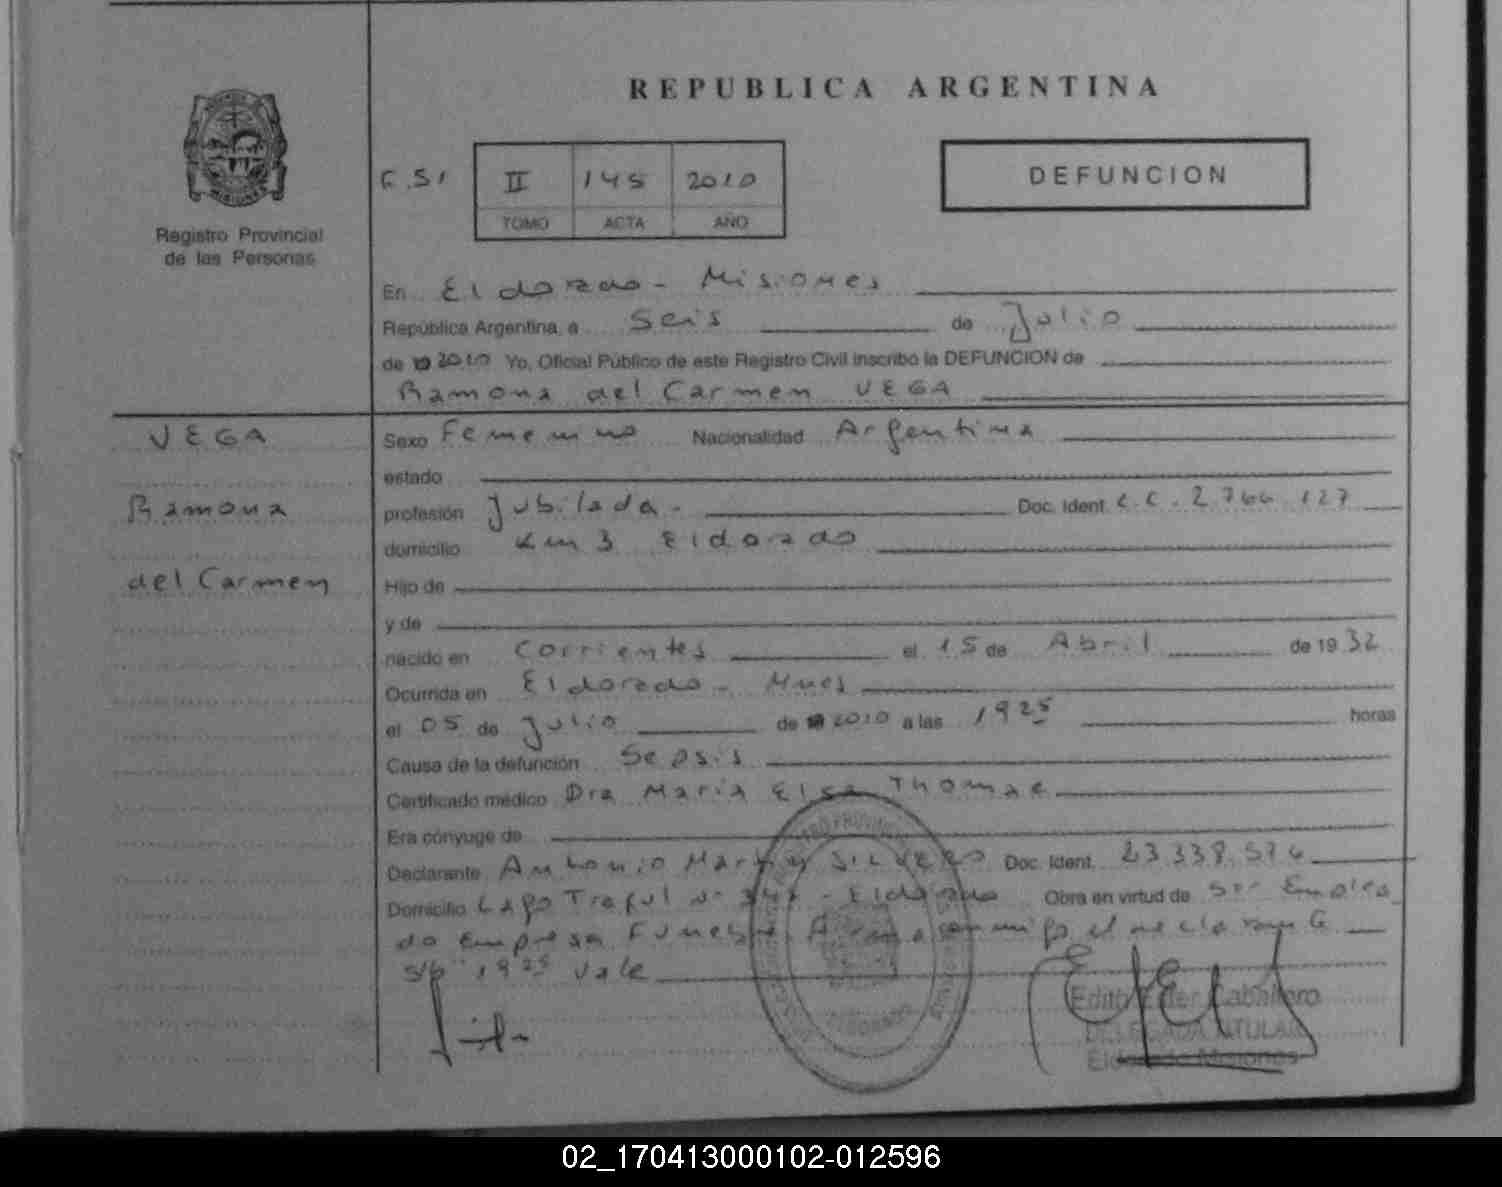 REPUBLICA ARGENTINA
DEFUNCION
II 145 2010
TOMO ACTA AÑO
Registro Provincial
de las Personas
En Eldorado - Misiones
República Argentina, a Seis de Julio
de 2010 Yo, Oficial Público de este Registro Civil inscribo la DEFUNCION de
Ramona del Carmen VEGA
VEGA
Ramona
del Carmen
Sexo Femenino Nacionalidad Argentina
estado
profesión Jubilada - Doc. Ident.
domicilio Km 3 Eldorado
Hijo de
y de
nacido en Corrientes el 15 de Abril de 1932
Ocurrida en Eldorado - Mnes
el 05 de Julio de 2010 a las 1925 horas
Causa de la defunción Sepsis
Certificado médico Dra Maria Elsa Thomae
Era cónyuge de
Declarante Antonio SILVERO Doc. Ident. 23.338.576
Domicilio Lago Traful Nº - Eldorado Obra en virtud de Ser Emplea
do Empresa Funebre. Firma conmigo el declarante
s/b 1925 Vale
Edith Ester Caballero
DELEGADA TITULAR
Eldorado Misiones
02_170413000102-012596